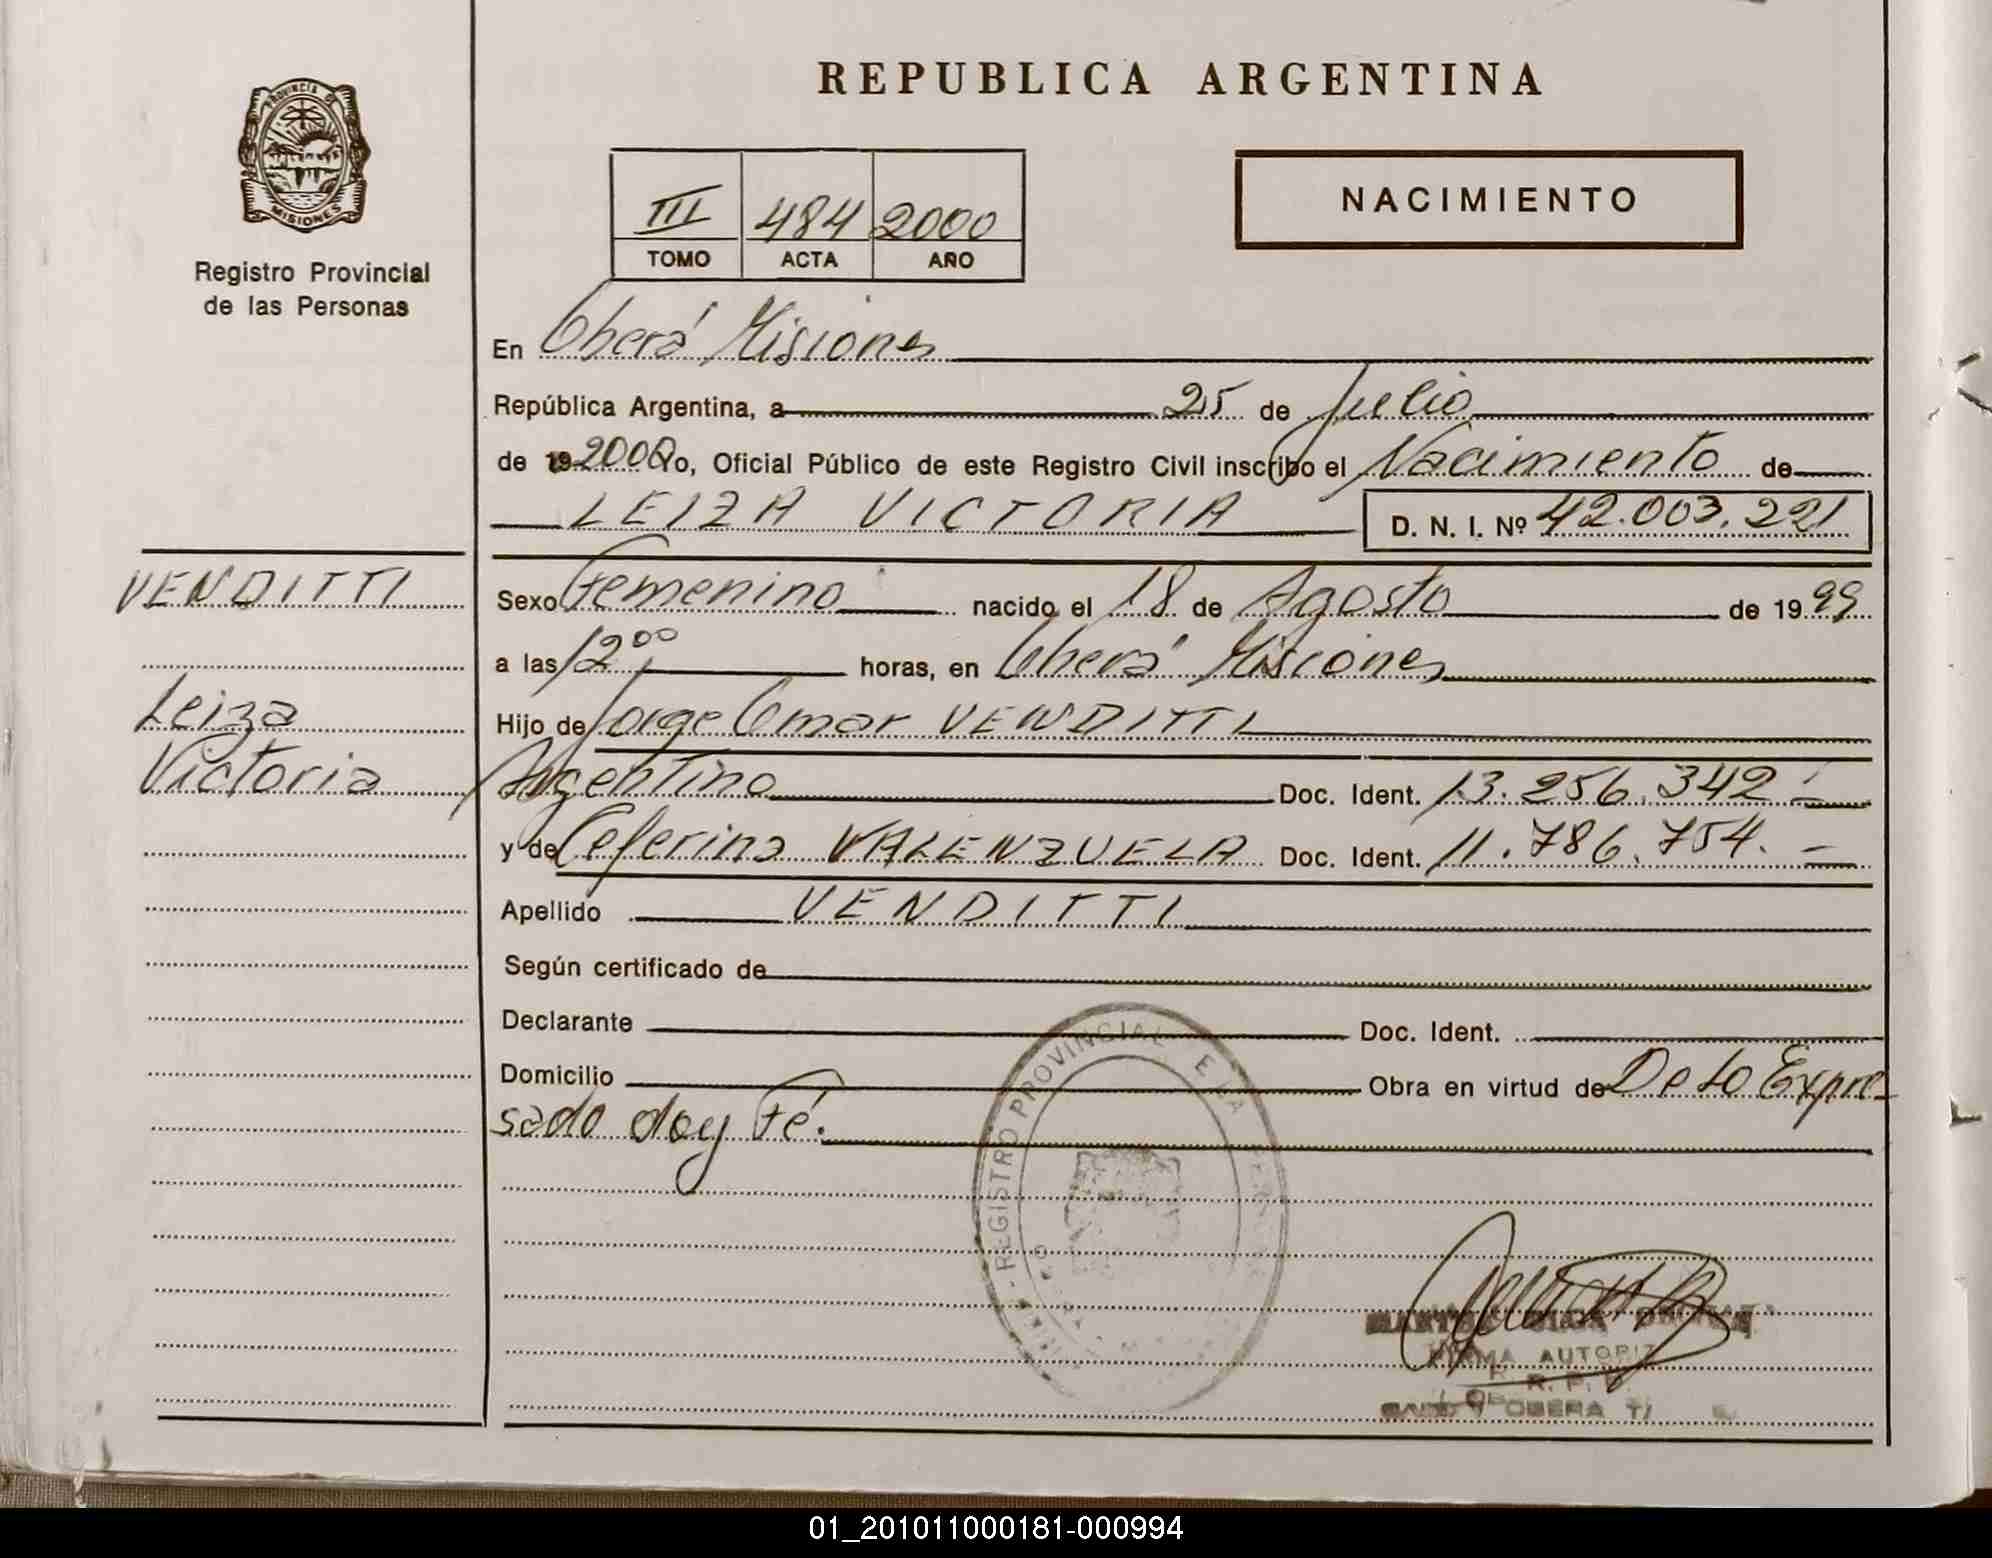 REPUBLICA ARGENTINA
PROVINCIA DE
MISIONES
Registro Provincial
de las Personas
III 484 2000
TOMO ACTA AÑO
NACIMIENTO
En Oberá Misiones
República Argentina, a 25 de Julio
de 19 2000 Yo, Oficial Público de este Registro Civil inscribo el Nacimiento de
LEIZA VICTORIA D. N. I. Nº 42.003.221
VENDITTI
Sexo Femenino nacido el 18 de Agosto de 19 99
a las 12 00 horas, en Oberá Misiones
Leiza
Hijo de Jorge Omar VENDITTI
Victoria
Argentino Doc. Ident. 13.256.342 -
y de Ceferina VALENZUELA Doc. Ident. 11.786.754. -
Apellido VENDITTI
Según certificado de
Declarante Doc. Ident.
Domicilio Obra en virtud de De Lo Expre-
sado doy Fé.
REGISTRO PROVINCIAL E LA
FIRMA AUTORIZ
R. R. P. P.
OBERA
01_201011000181-000994